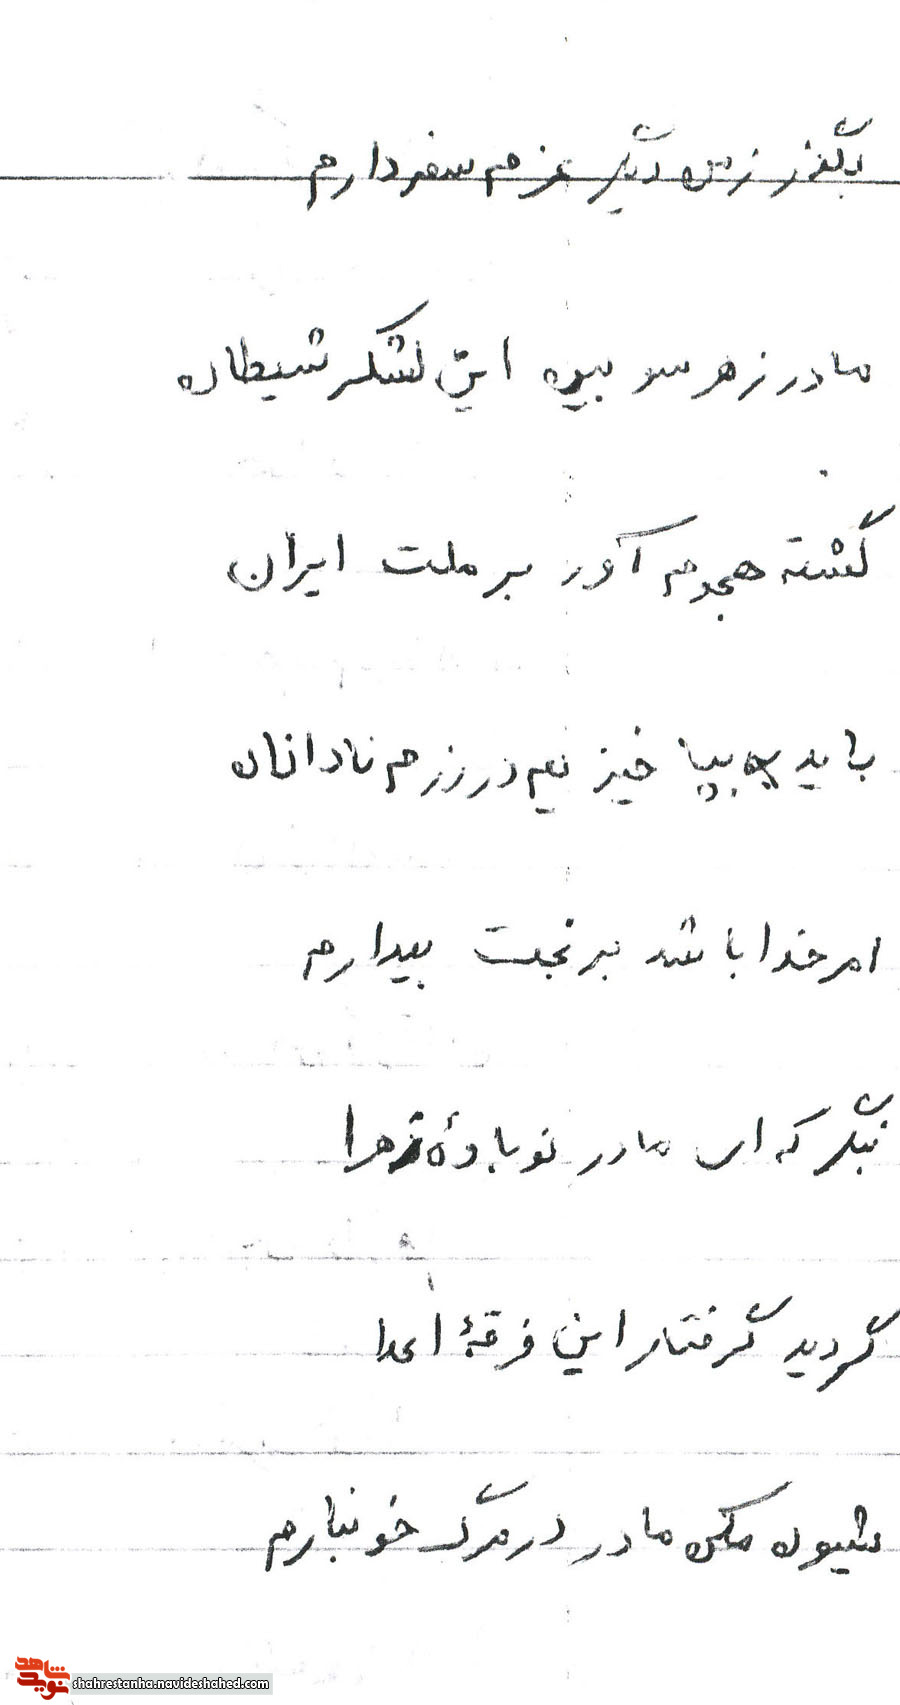 بگذر ز من دیگر عزم سفر دارم
مادر ز هر سو بین این لشکر شیطان
گشته هجوم آور بر ملت ایران
باید بپا خیزیم در رزم نادانان
امر خدا باشد بر بخت بیدارم
بنگر که ای مادر نوباوهٔ زهرا
گردید گرفتار این فرقهٔ اعدا
شیون مکن مادر در مرگ خونبارم
نوید شاهد
shahrestanha.navideshahed.com